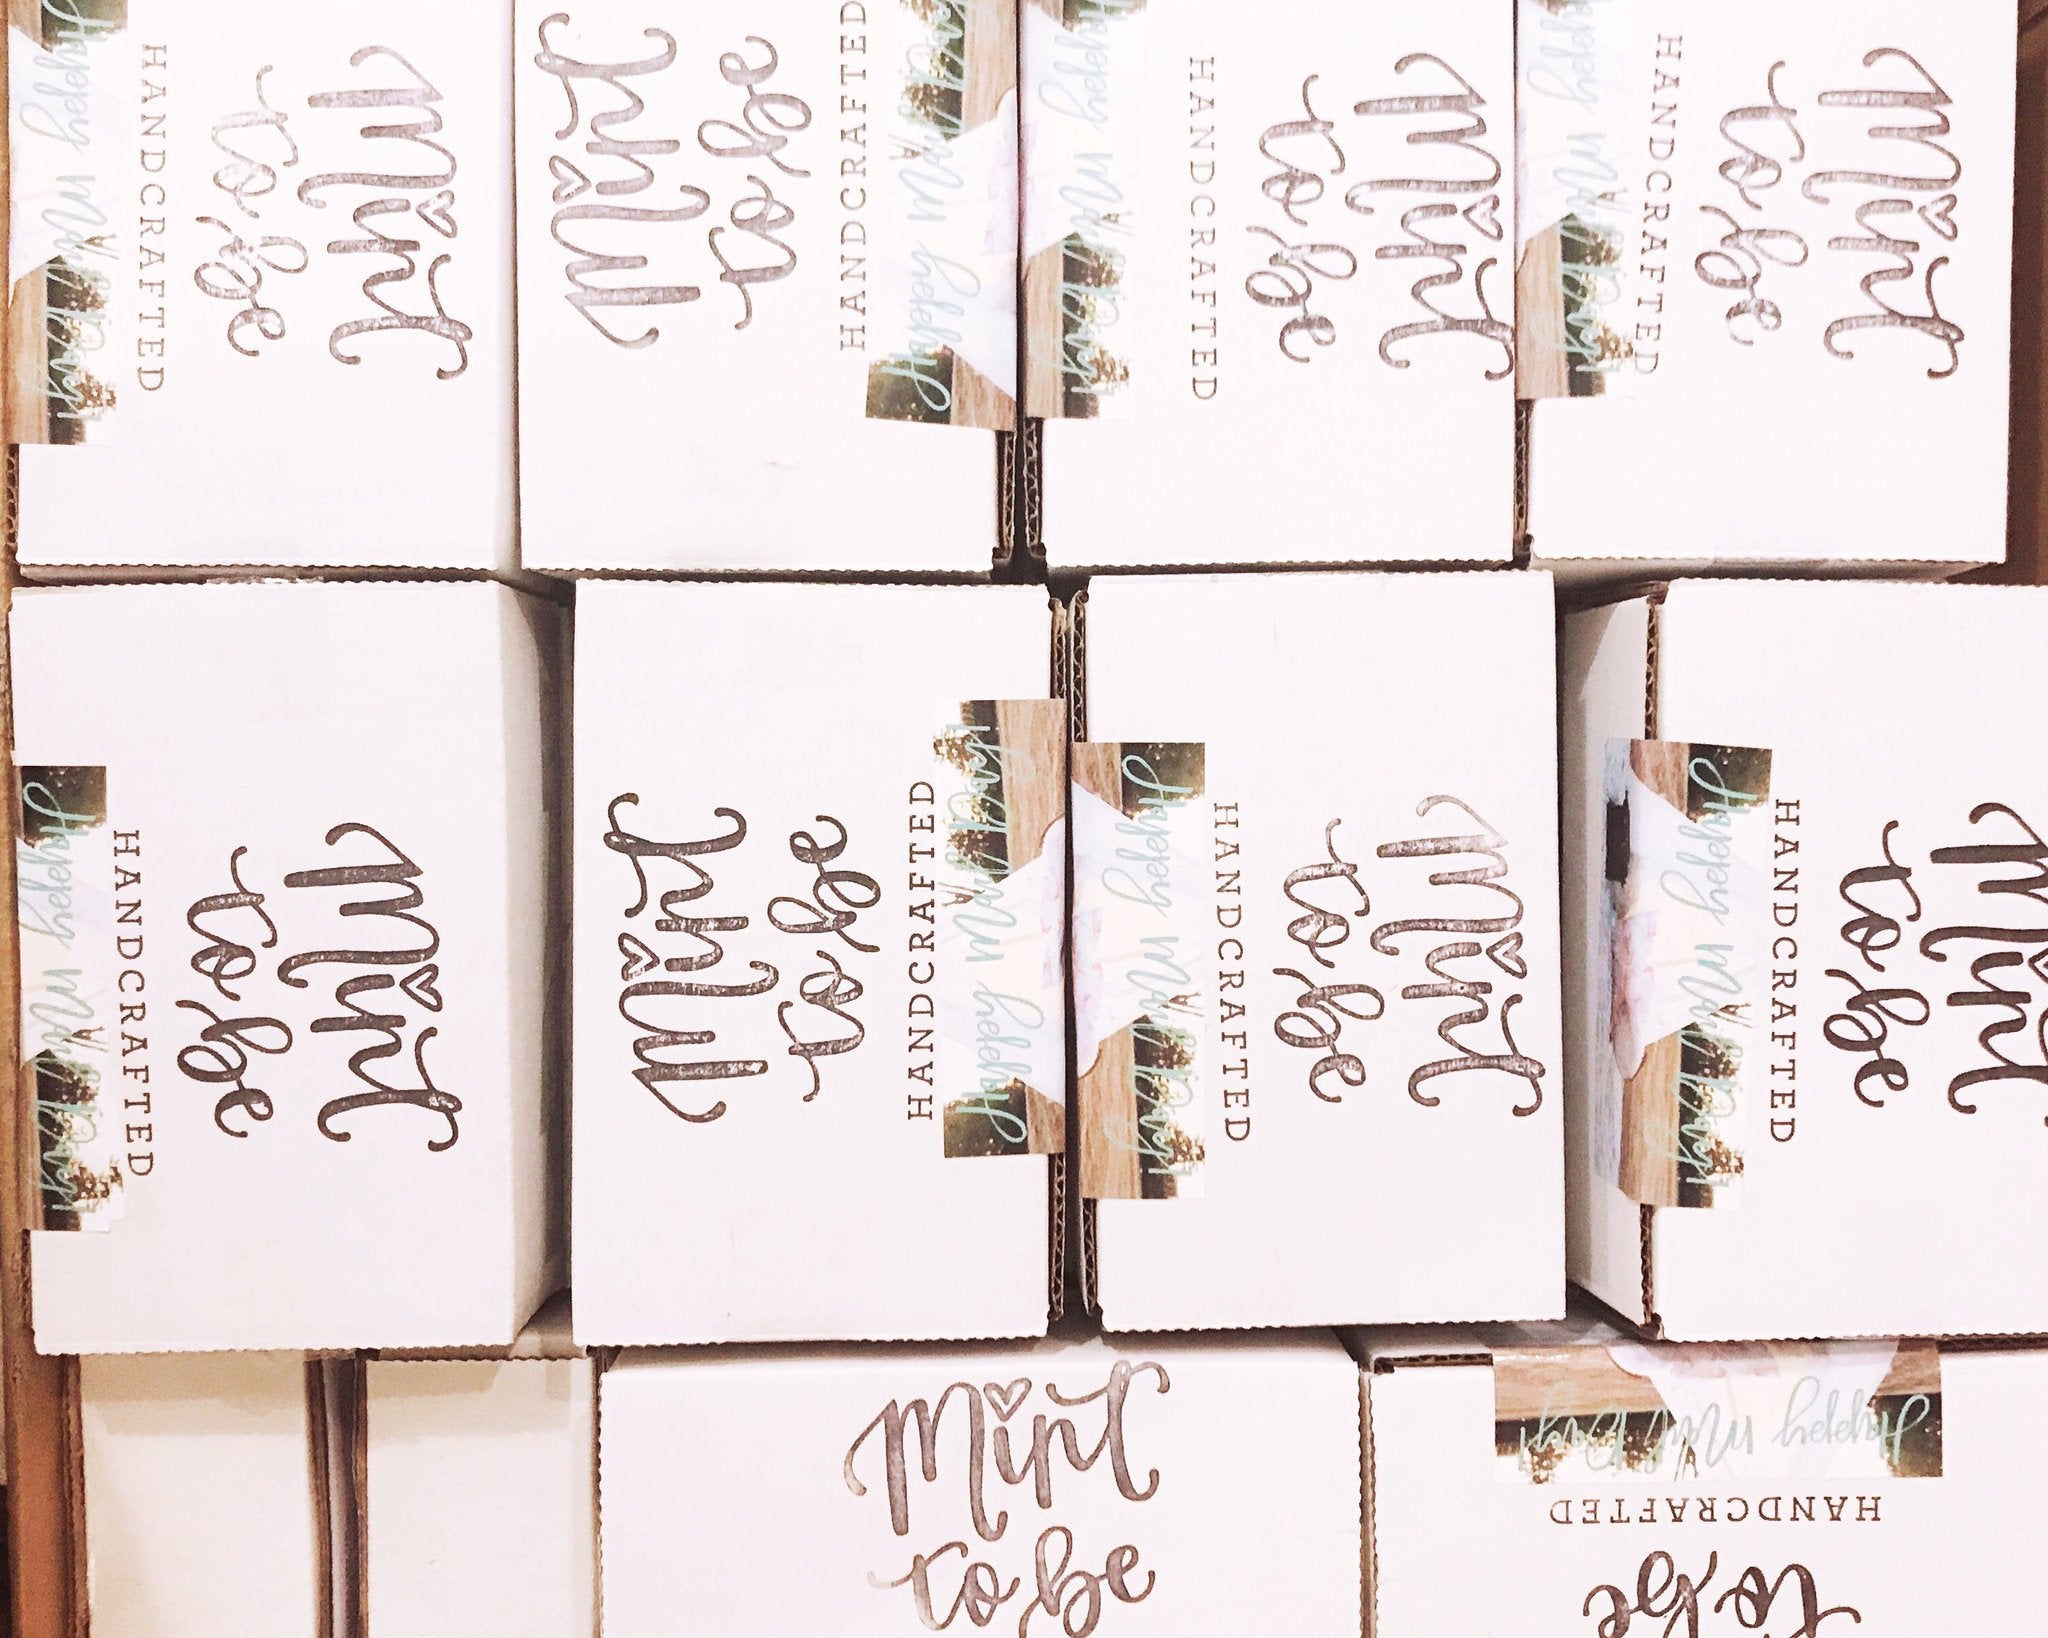 Mint
to be
HANDCRAFTED
Happy Mail Day!
Mint
to be
HANDCRAFTED
Happy Mail
Mint
to be
HANDCRAFTED
Happy Mail Day!
Mint
to be
HANDCRAFTED
Happy Mail Day!
Mint
to be
HANDCRAFTED
Happy Mail Day!
Mint
to be
HANDCRAFTED
Happy Mail Day!
Mint
to be
HANDCRAFTED
Happy Mail Day!
Mint
to be
HANDCRAFTED
Happy Mail Day!
Mint
to be
to be
HANDCRAFTED
Happy Mail Day!